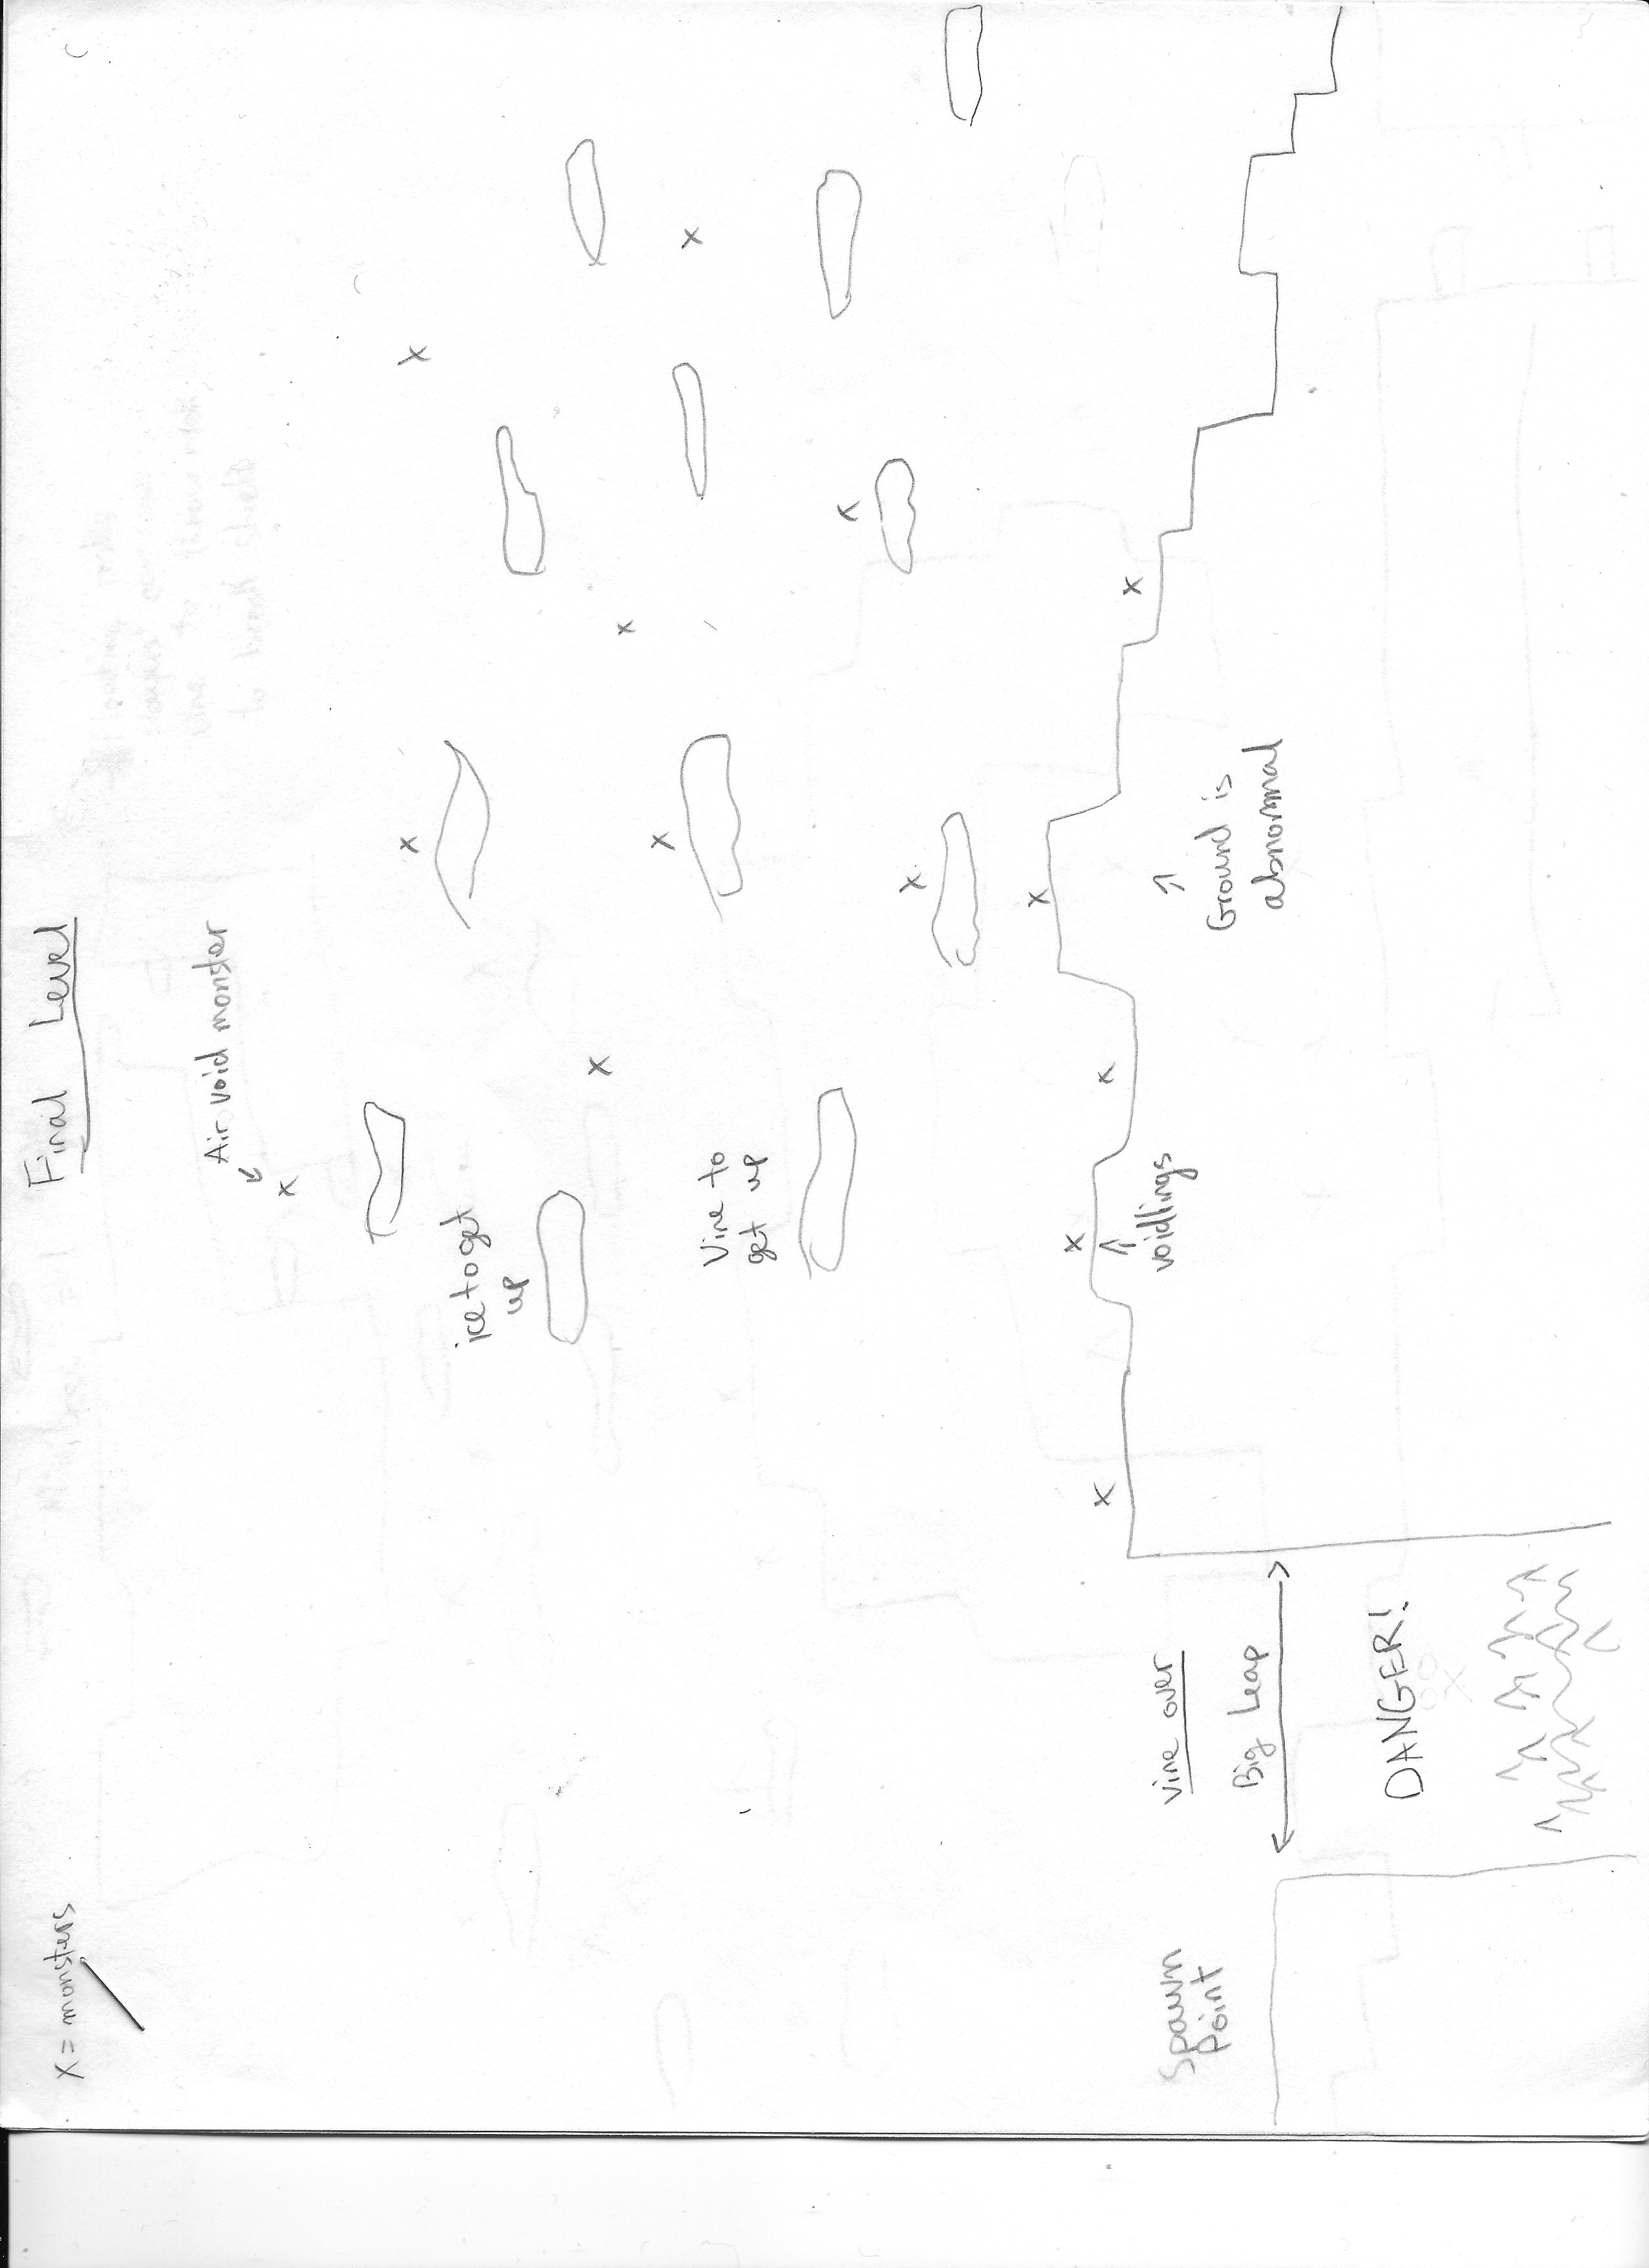 Final Level
X = monsters
Air void monster
x
ice to get
up
Vine to
get up
voidlings
Ground is
abnormal
vine over
Big Leap
DANGER!
Spawn
Point